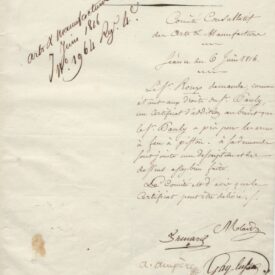 Arts & Manufactures
7 Juin 1816
N° 1964 Reg. 4e
Comité Consultatif
des Arts & Manufactures
Séance du 6 Juin 1816.
Le Sr. Roux demande, comme
étant aux droits du Sr. Pauly,
un Certificat d'addition au brevet que
le Sr. Pauly a pris pour les armes
à feu à piston. à sa demande
sont jointes une description et des
dessins assez bien faits.
Le Comité est d'avis que le
Certificat peut être délivré.
Molard
Bernard
a. ampère
Gay-Lussac